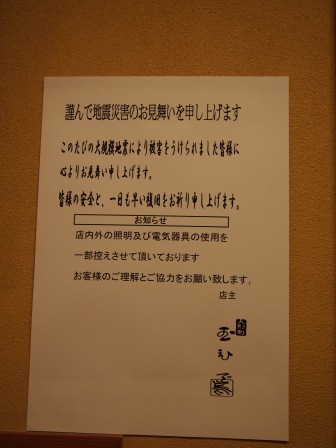 謹んで地震災害のお見舞いを申し上げます
このたびの大規模地震により被害をうけられました皆様に
心よりお見舞い申し上げます。
皆様の安全と、一日も早い復旧をお祈り申し上げます。
お知らせ
店内外の照明及び電気器具の使用を
一部控えさせて頂いております
お客様のご理解とご協力をお願い致します。
店主
人形町
玉ひで